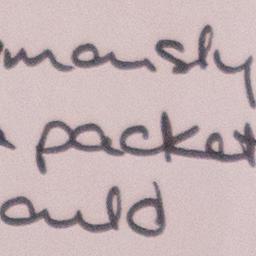 mously
packet
ould